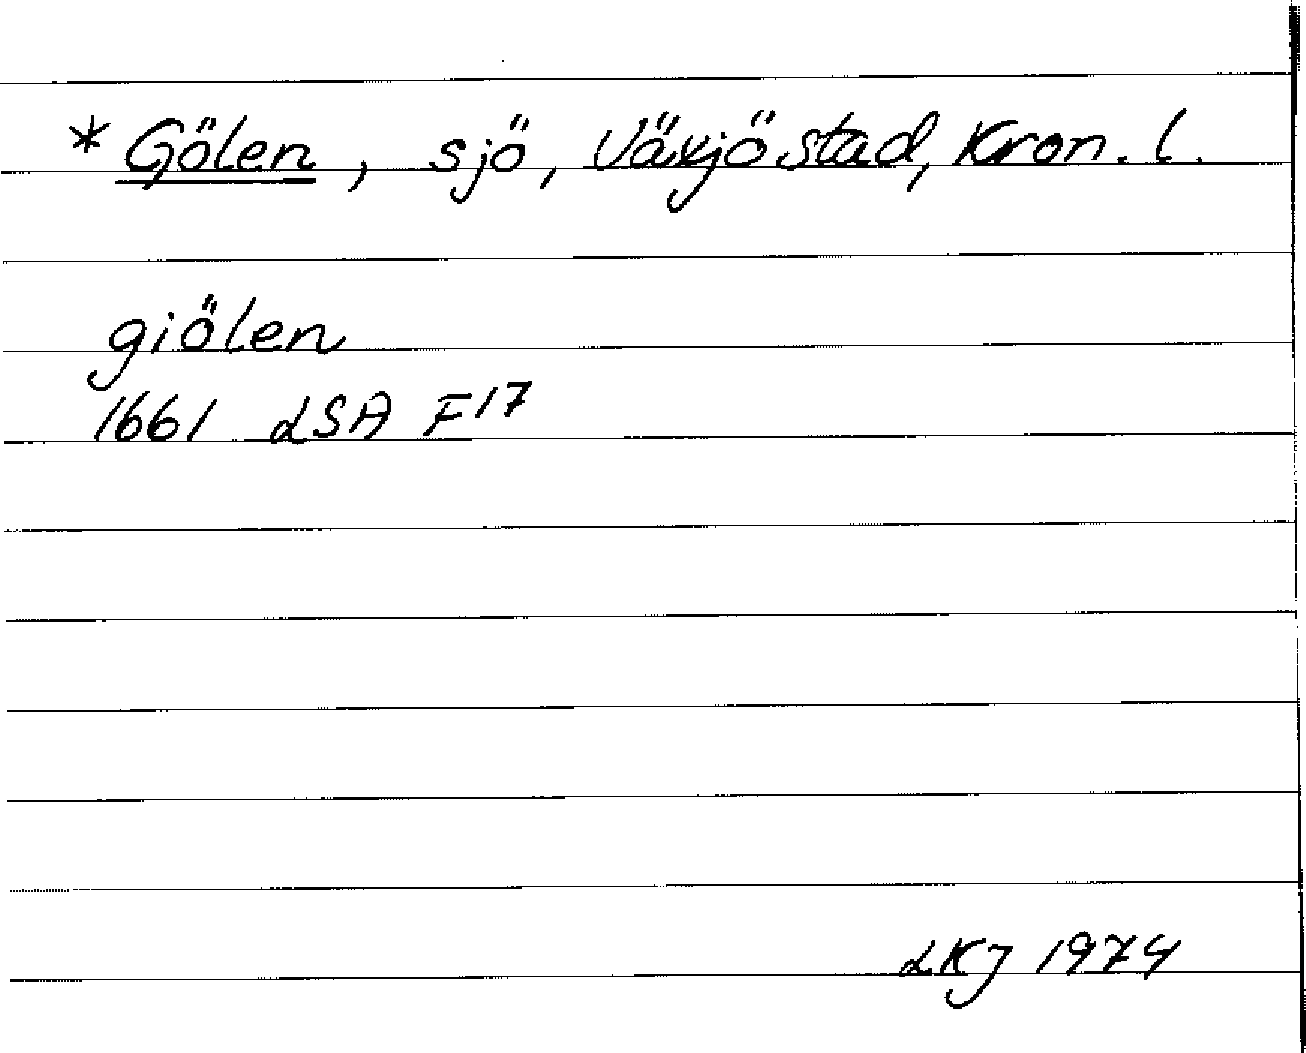 * Gölen, sjö, Växjö stad, Kron. l.
giölen
1661 LSA F17
LKJ 1974